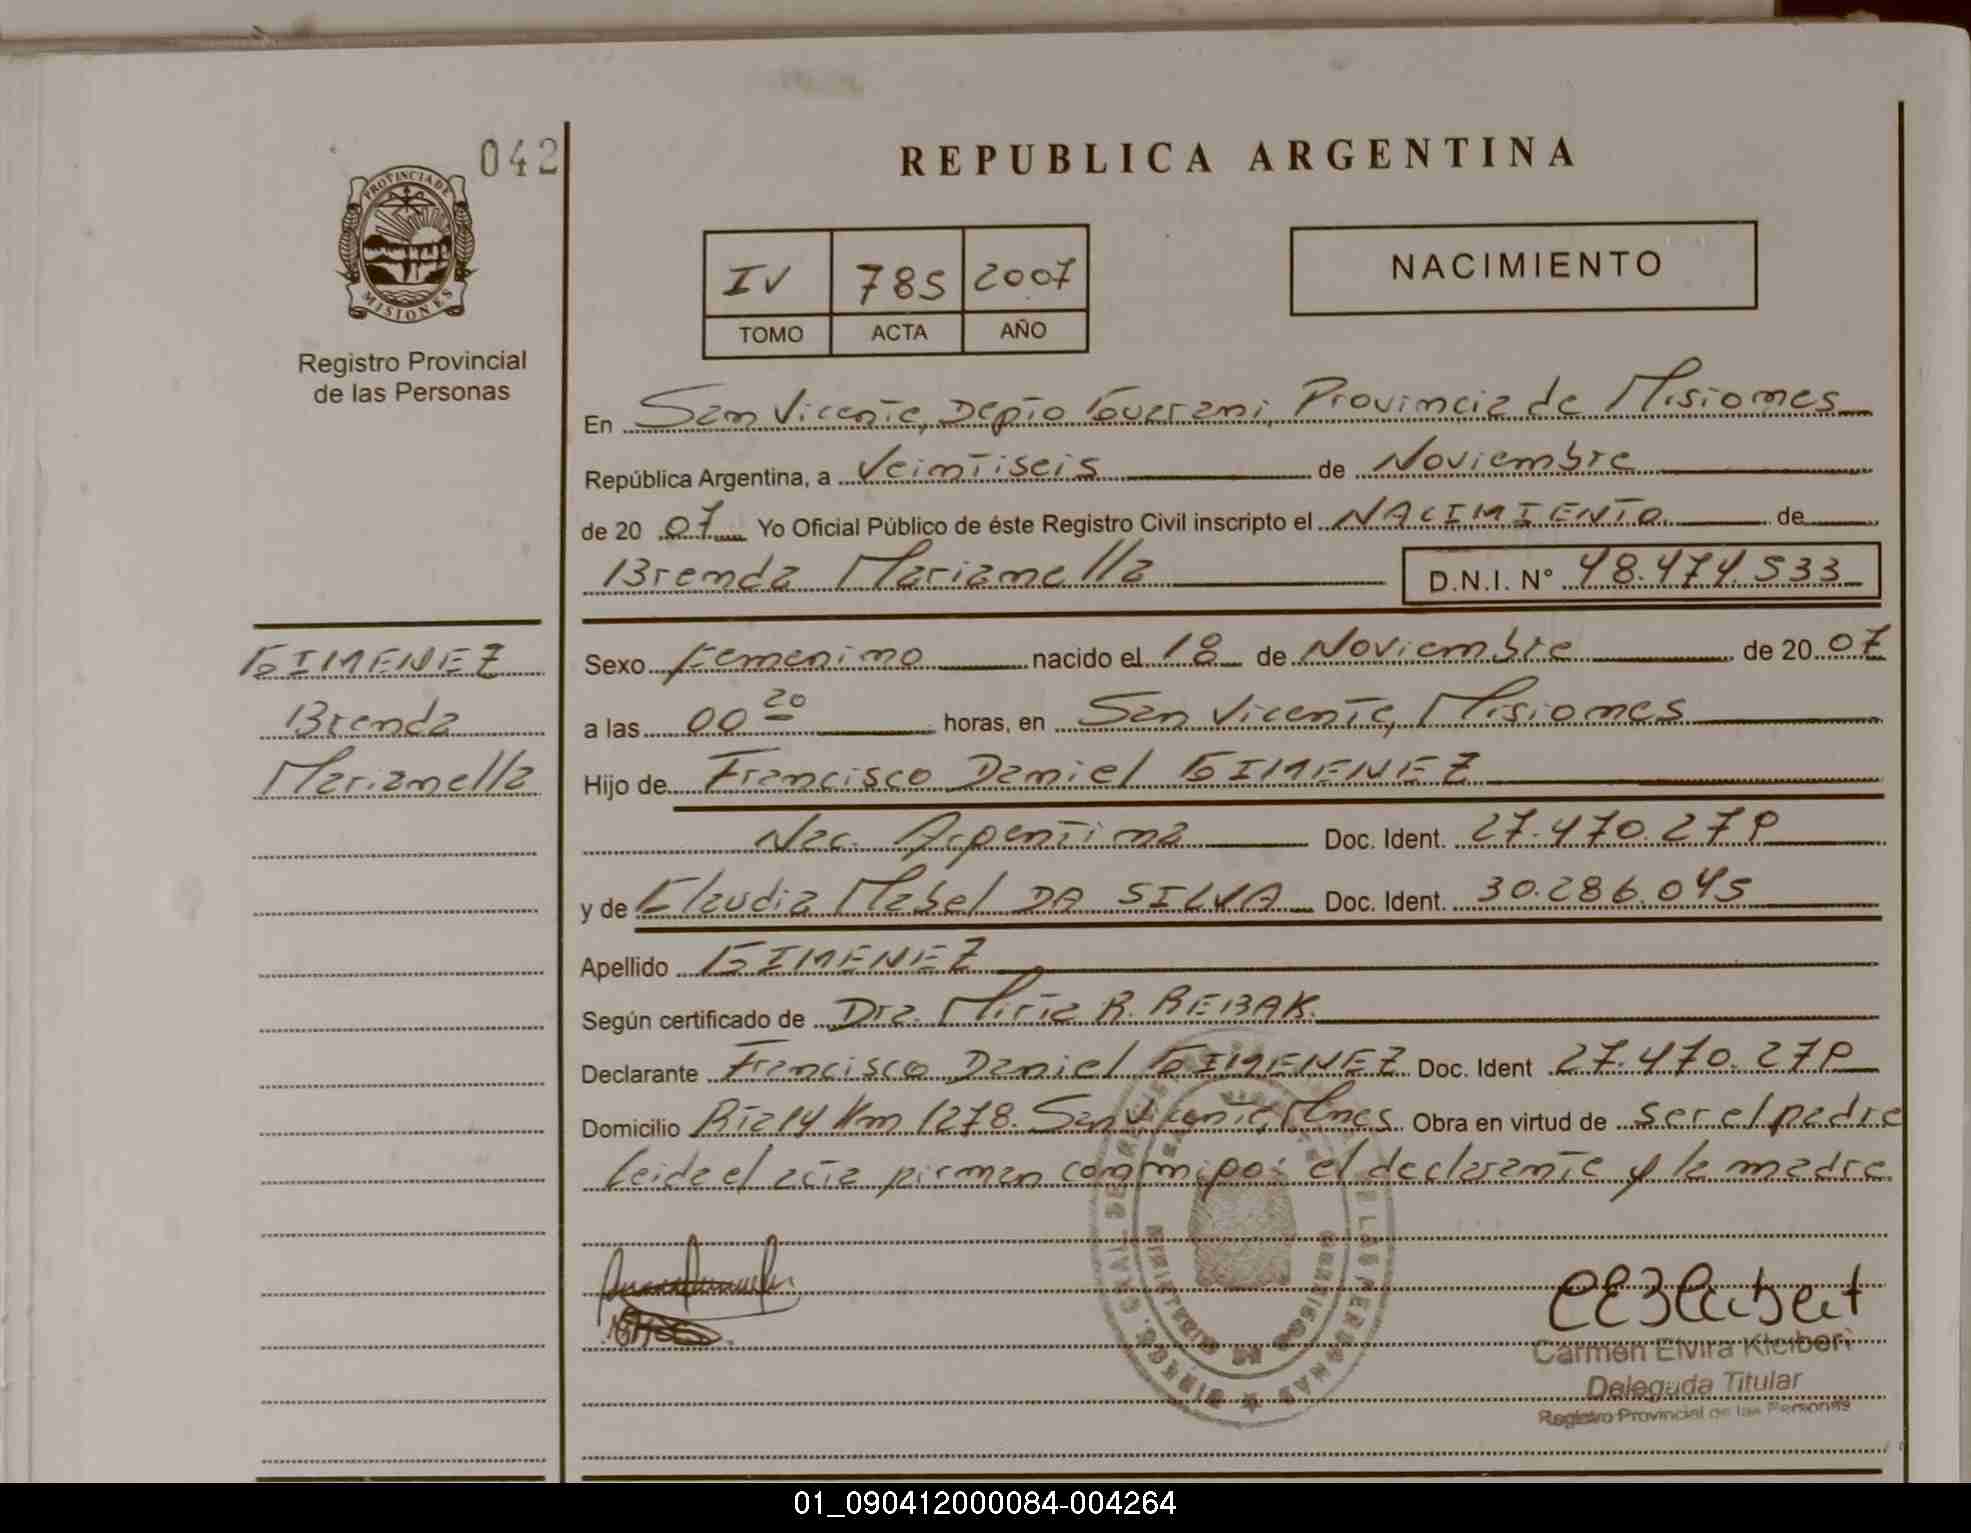 042
PROVINCIA DE
MISIONES
Registro Provincial
de las Personas
GIMENEZ
Brenda
Marianella
REPUBLICA ARGENTINA
IV 785 2007
TOMO ACTA AÑO
NACIMIENTO
En San Vicente, Depto Guarani, Provincia de Misiones
República Argentina, a Veintiseis de Noviembre
de 20 07 Yo Oficial Público de éste Registro Civil inscripto el NACIMIENTO de
Brenda Marianella D.N.I. N° 48.474.533
Sexo Femenino nacido el 18 de Noviembre de 20 07
a las 00 20 horas, en San Vicente, Misiones
Hijo de Francisco Daniel GIMENEZ
Nac. Argentina Doc. Ident. 27.470.279
y de Claudia Mabel DA SILVA Doc. Ident. 30.286.045
Apellido GIMENEZ
Según certificado de Dra. Mirta R. REBAK.
Declarante Francisco Daniel GIMENEZ Doc. Ident 27.470.279
Domicilio Rta 14 Km 1278. San Vicente, Mnes. Obra en virtud de ser el padre
Leida el acta firman conmigo: el declarante y la madre
Carmen Elvira Kleibert
Delegada Titular
Registro Provincial de las Personas
01_090412000084-004264